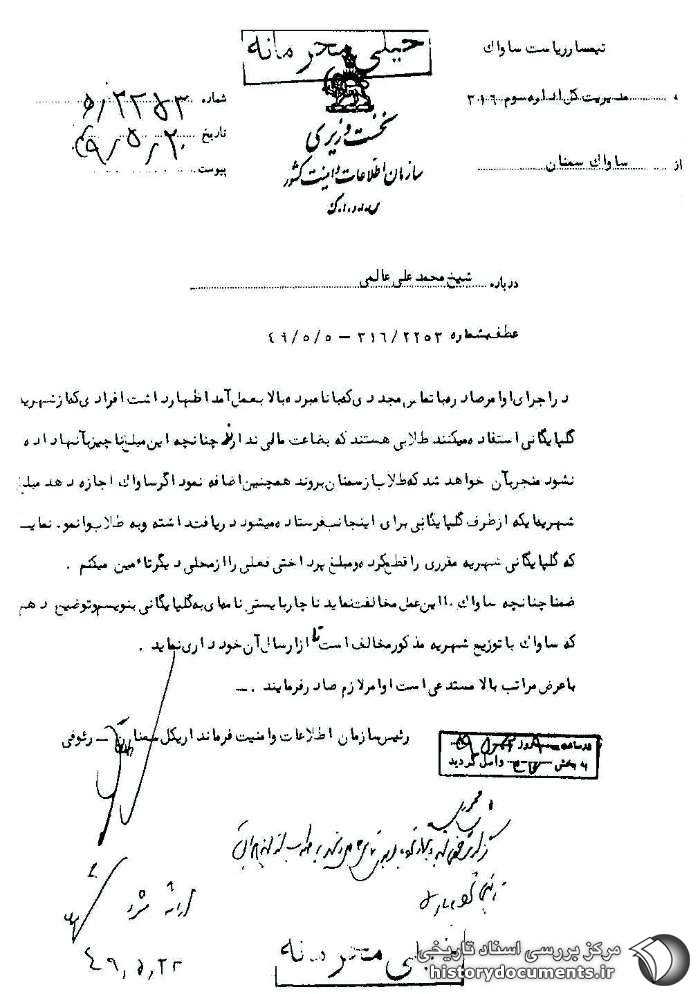 خیلی محرمانه
تیمسار ریاست ساواك
مدیریت کل اداره سوم ۳۱۶
از ساواك سمنان
نخست وزیری
سازمان اطلاعات و امنیت کشور
س.ا.و.ا.ك
شماره ۵/۲۲۵۳
تاریخ ۴۹/۵/۲۰
پیوست
درباره شیخ محمد علی عالمی
عطف بشماره ۳۱۶/۲۲۵۳ – ۴۹/۵/۵
در اجرای اوامر صادره با تماس مجددی که با نامبرده بالا بعمل آمد اظهار داشت افرادی که از شهریه
گلپایگانی استفاده میکنند طلابی هستند که بضاعت مالی ندارند چنانچه این مبلغ ناچیز بآنها داده
نشود منجر بآن خواهد شد که طلاب از سمنان بروند همچنین اضافه نمود اگر ساواك اجازه دهد مبلغ
شهریه ایکه از طرف گلپایگانی برای اینجانب فرستاده میشود دریافت داشته و به طلاب وانمود نمایـ
که گلپایگانی شهریه مقرری را قطع کرده و مبلغ پرداختی فعلی را از محلی دیگر تاٴمین میکنم .
ضمنا چنانچه ساواك با این عمل مخالفت نماید ناچار بایستی نامه ای به گلپایگانی بنویسم و توضیح دهم
که ساواك با توزیع شهریه مذکور مخالف است تا از ارسال آن خودداری نماید .
با عرض مراتب بالا مستدعی است اوامر لازم صادر فرمایند . —
رئیس سازمان اطلاعات و امنیت فرمانداریکل سمنان – رئوفی
در ساعت روز
به بخش واصل گردید
۴۹/۵/۲۳
خیلی محرمانه
مرکز بررسی اسناد تاریخی
historydocuments.ir